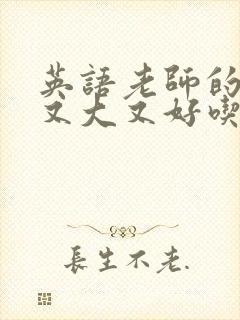 英語老師的
又大又好喫
長生不老.